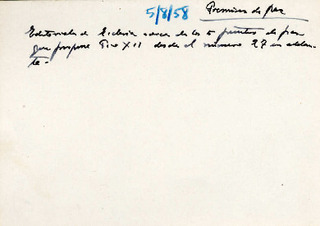 5/8/58 Premisas de paz
Editoriales de Ecclesia acerca de los 5 puntos de paz
que propone Pio XII desde el número 27 en adelan-
te.-